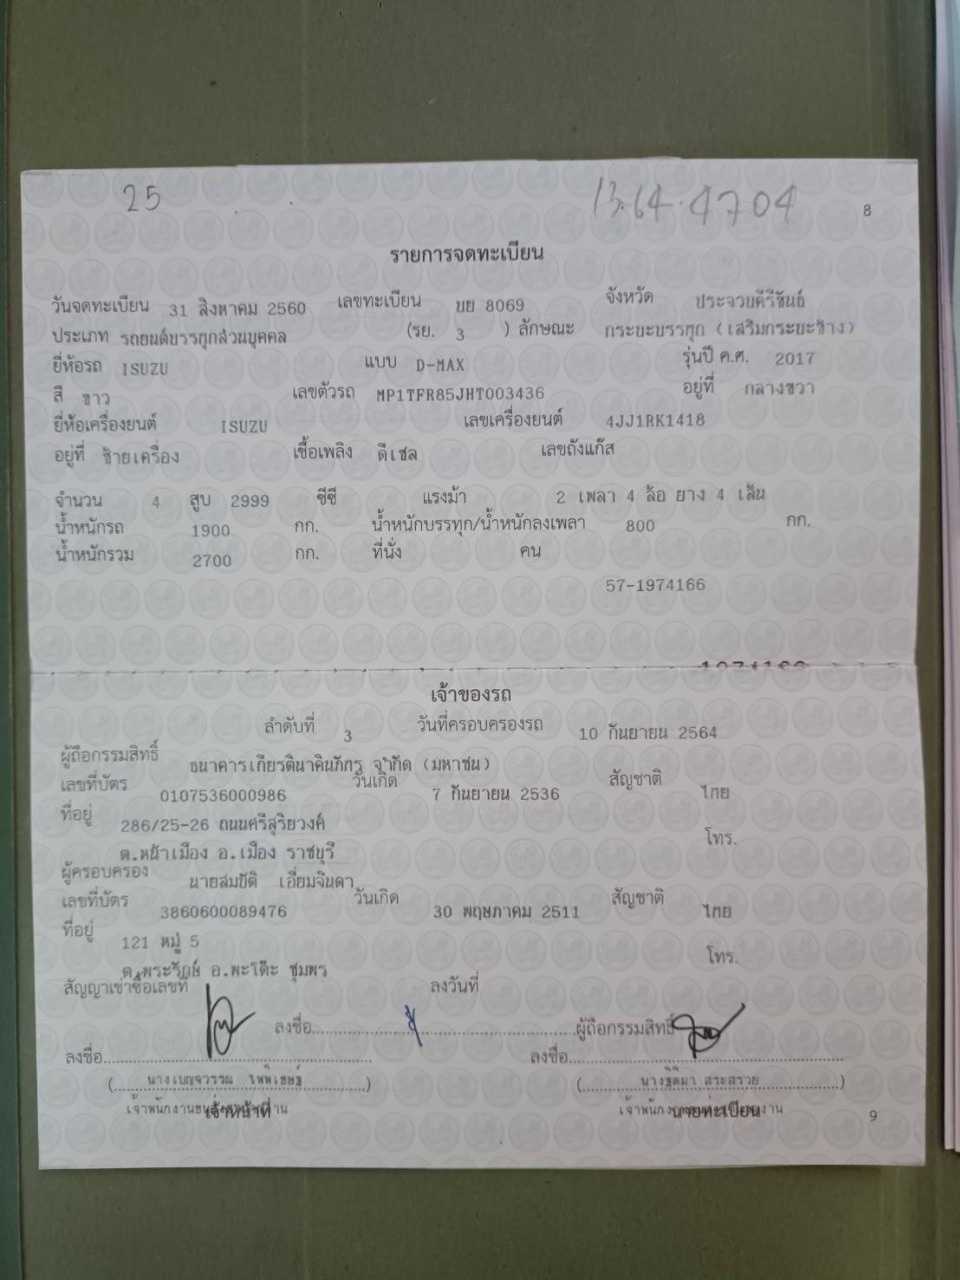 25
13.64.4704
8
รายการจดทะเบียน
วันจดทะเบียน 31 สิงหาคม 2560 เลขทะเบียน ขย 8069 จังหวัด ประจวบคีรีขันธ์
ประเภท รถยนต์บรรทุกส่วนบุคคล (รย. 3 ) ลักษณะ กระบะบรรทุก (เสริมกระบะข้าง)
ยี่ห้อรถ ISUZU แบบ D-MAX รุ่นปี ค.ศ. 2017
สี ขาว เลขตัวรถ MP1TFR85JHT003436 อยู่ที่ กลางขวา
ยี่ห้อเครื่องยนต์ ISUZU เลขเครื่องยนต์ 4JJ1RK1418
อยู่ที่ ซ้ายเครื่อง เชื้อเพลิง ดีเซล เลขถังแก๊ส
จำนวน 4 สูบ 2999 ซีซี แรงม้า 2 เพลา 4 ล้อ ยาง 4 เส้น
น้ำหนักรถ 1900 กก. น้ำหนักบรรทุก/น้ำหนักลงเพลา 800 กก.
น้ำหนักรวม 2700 กก. ที่นั่ง คน
57-1974166
เจ้าของรถ
ลำดับที่ 3 วันที่ครอบครองรถ 10 กันยายน 2564
ผู้ถือกรรมสิทธิ์ ธนาคารเกียรตินาคินภัทร จำกัด (มหาชน)
เลขที่บัตร 0107536000986 วันเกิด 7 กันยายน 2536 สัญชาติ ไทย
ที่อยู่ 286/25-26 ถนนศรีสุริยวงศ์
ต.หน้าเมือง อ.เมือง ราชบุรี โทร.
ผู้ครอบครอง นายสมบัติ เอี่ยมจินดา
เลขที่บัตร 3860600089476 วันเกิด 30 พฤษภาคม 2511 สัญชาติ ไทย
ที่อยู่ 121 หมู่ 5
ต.พระรักษ์ อ.พะโต๊ะ ชุมพร โทร.
สัญญาเช่าซื้อเลขที่ ลงวันที่
ลงชื่อ ผู้ถือกรรมสิทธิ์
ลงชื่อ ลงชื่อ
(นางเบญจวรรณ ) (นางฐิติมา สระสรวย)
เจ้าหน้าที่ นายทะเบียน
9